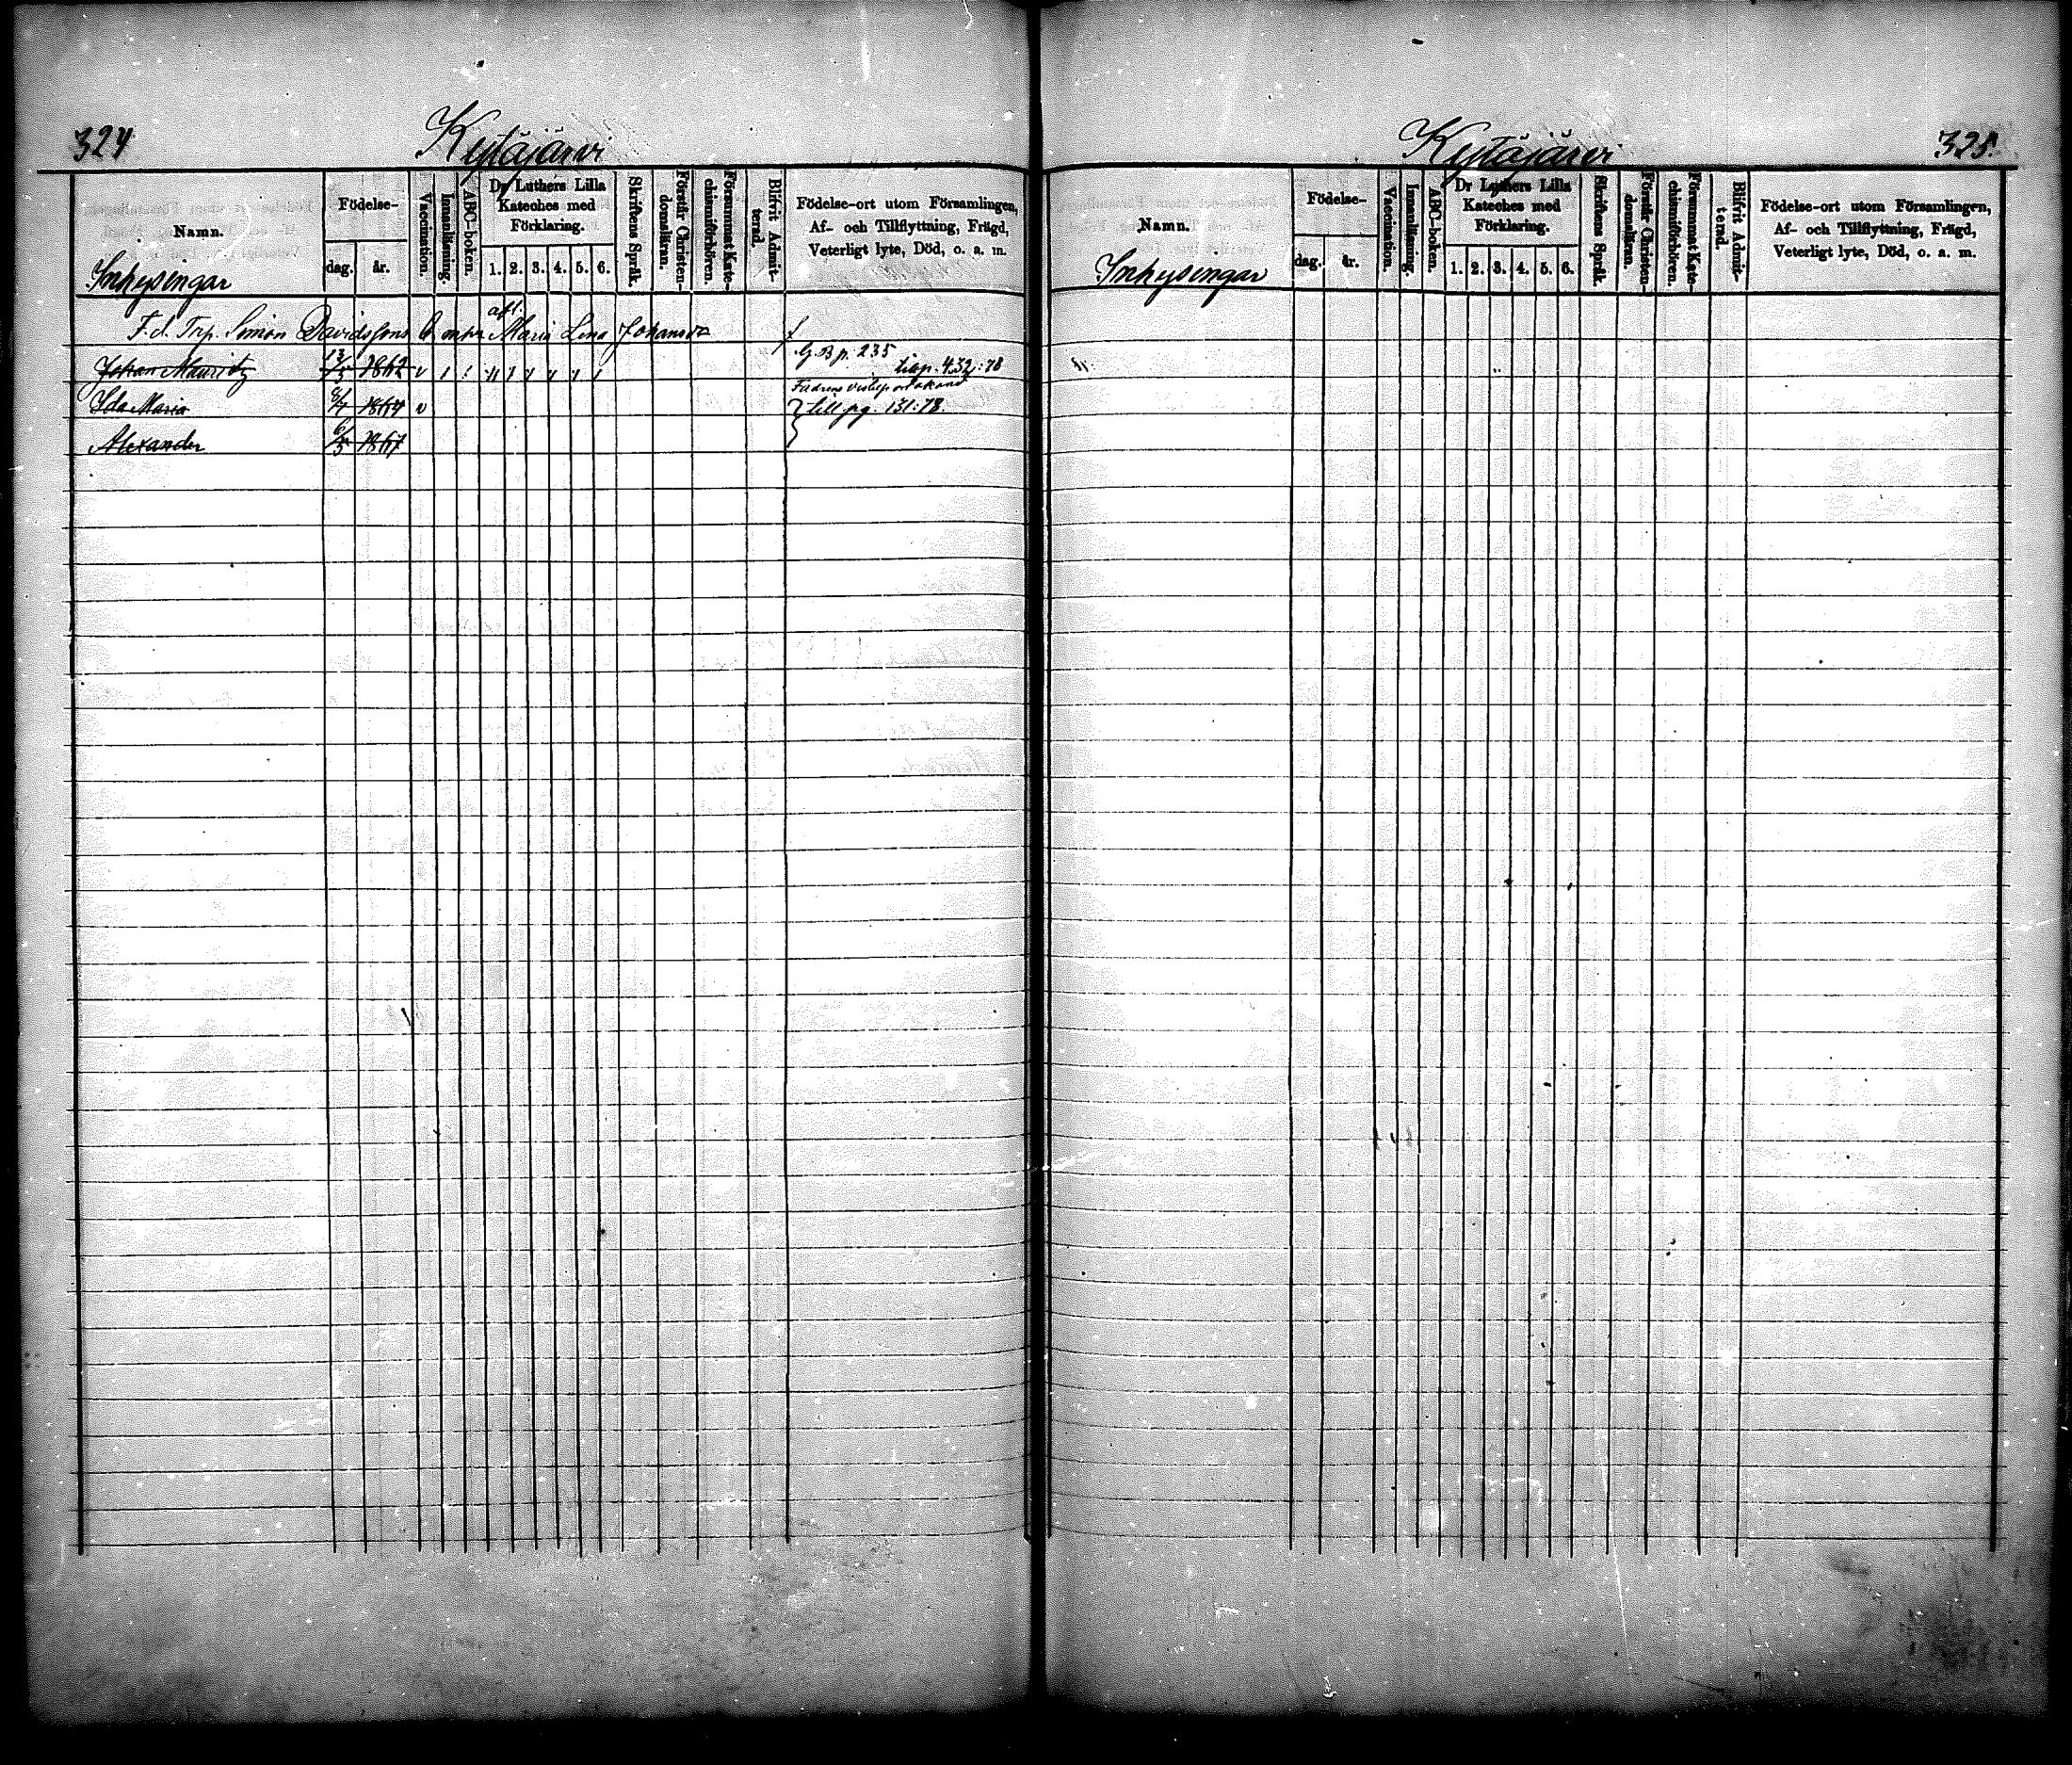 324
Kytäjärvi
Namn.
Inhysingar
Födelse-
dag. år.
Vaccination.
Innanläsning.
ABC-boken.
Dr Luthers Lilla
Kateches med
Förklaring.
1. 2. 3. 4. 5. 6.
Skriftens Språk.
Förstår Christen-
domsläran.
Försummat Kate-
chismiförhören.
Blifvit Admit-
terad.
Födelse-ort utom Församlingen,
Af- och Tillflyttning, Frägd,
Veterligt lyte, Död, o. a. m.
afl.
F. d. Trp. Simon Davidssons Maria Lena Johansd
Johan Mauritz 13/5 1862 v
G B p. 235
432:78
Ida Maria 6/7 1864 v
Fadrens
till pg. 131:78.
Alexander 6/5 1867
Kytäjärvi
325.
Namn.
Inhysingar
Födelse-
dag. år.
Vaccination.
Innanläsning.
ABC-boken.
Dr Luthers Lilla
Kateches med
Förklaring.
1. 2. 3. 4. 5. 6.
Skriftens Språk.
Förstår Christen-
domsläran.
Försummat Kate-
chismiförhören.
Blifvit Admit-
terad.
Födelse-ort utom Församlingen,
Af- och Tillflyttning, Frägd,
Veterligt lyte, Död, o. a. m.